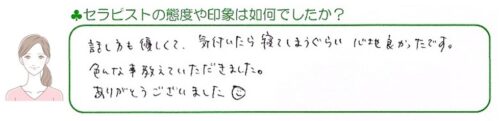 ♣セラピストの態度や印象は如何でしたか？
話し方も優しくて、気付いたら寝てしまうぐらい心地良かったです。
色んな事教えていただきました。
ありがとうございました☺